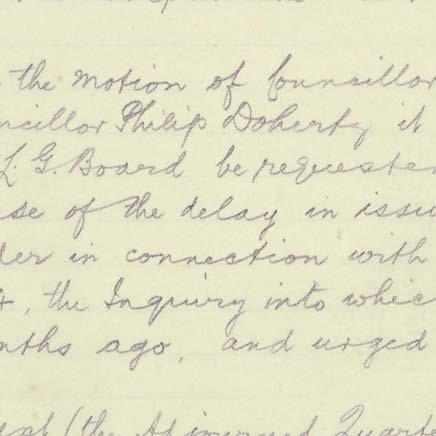 the motion of Councillor
ncillor Philip Doherty it
L. G. Board be requested
se of the delay in issu
der in connection with
t, the Inquiry into whic
nths ago, and urged
(the Adjourned Quarte